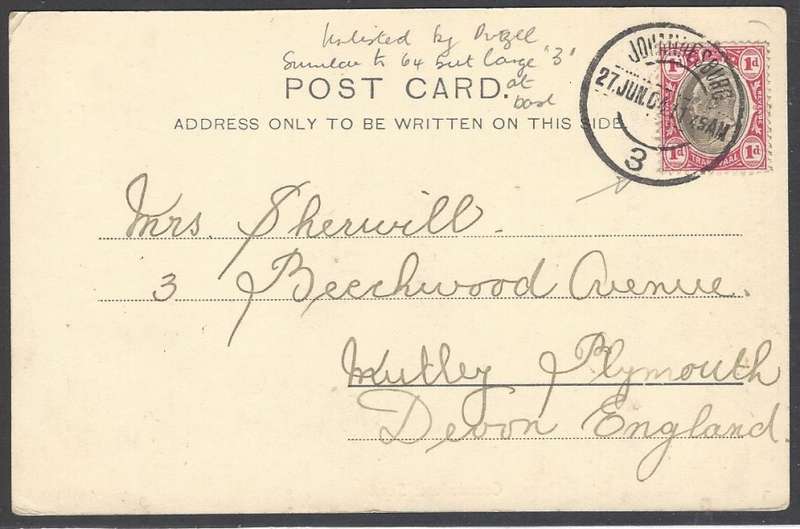 Unlisted by Putzel
Similar to 64 but large '3'
at
base
POST CARD.
ADDRESS ONLY TO BE WRITTEN ON THIS SIDE
JOHANNESBURG
27.JUN.04 11 45AM
3
1d 1d
1d 1d
TRANSVAAL
Mrs. Sherwill.
3 Beechwood Avenue.
Mutley Plymouth
Devon England.